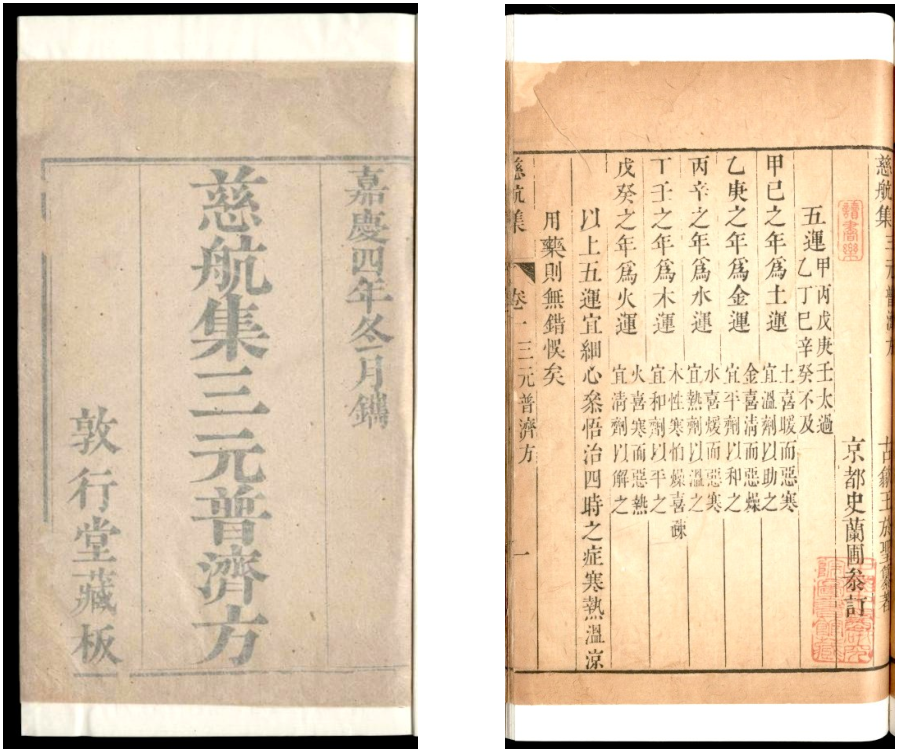 嘉慶四年冬月鐫
慈航集三元普濟方
敦行堂藏板
慈航集三元普濟方 王於聖
讀書樂
京都史蘭圃叅訂
五運 甲丙戊庚壬太過
乙丁巳辛癸不及
甲巳之年爲土運 土喜暖而惡寒
宜溫劑以助之
乙庚之年爲金運 金喜清而惡燥
宜平劑以和之
丙辛之年爲水運 水喜煖而惡寒
宜熱劑以溫之
丁壬之年爲木運 木性寒怕燥喜疎
宜和劑以平之
戊癸之年爲火運 火喜寒而惡熱
宜清劑以解之
以上五運宜細心叅悟治四時之症寒熱溫凉
用藥則無錯悞矣
慈航集 卷一 三元普濟方 一